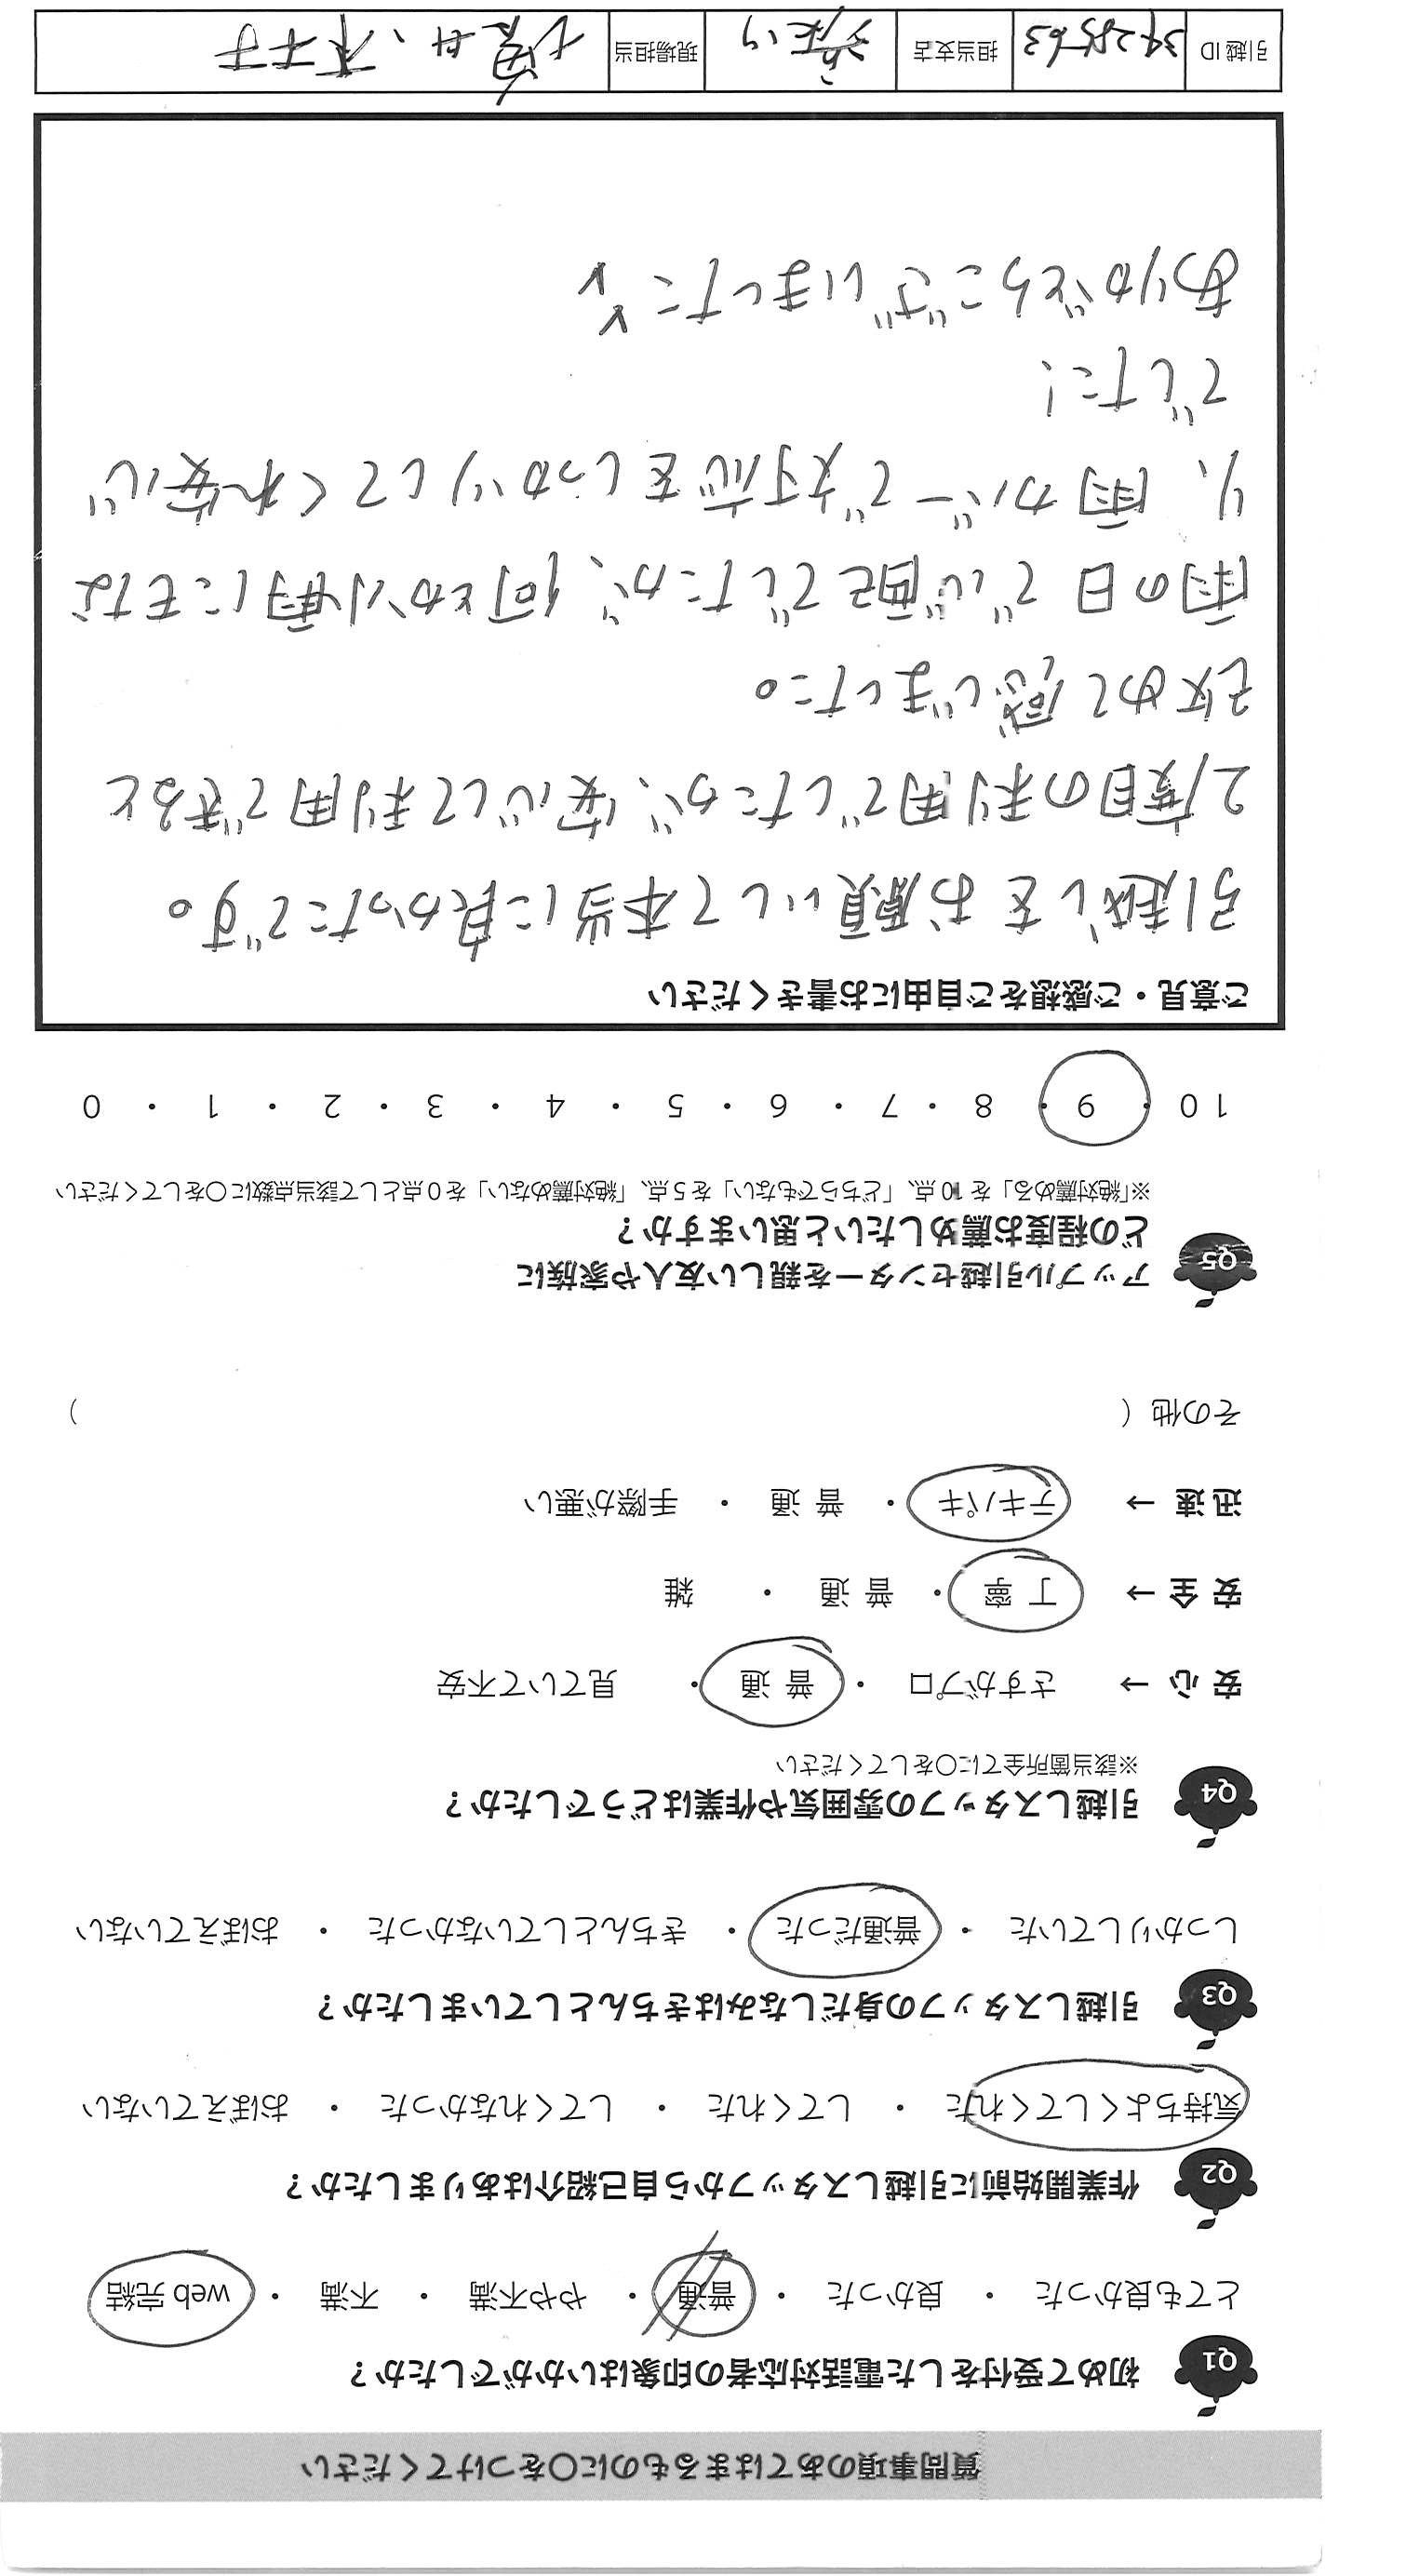 質問事項のあてはまるものに○をつけてください
Q1 初めて受付をした電話対応者の印象はいかがでしたか？
とても良かった ・ 良かった ・ 普通 ・ やや不満 ・ 不満 ・ web 完結
Q2 作業開始前に引越しスタッフから自己紹介はありましたか？
気持ちよくしてくれた ・ してくれた ・ してくれなかった ・ おぼえていない
Q3 引越しスタッフの身だしなみはきちんとしていましたか？
しっかりしていた ・ 普通だった ・ きちんとしていなかった ・ おぼえていない
Q4 引越しスタッフの雰囲気や作業はどうでしたか？
※該当箇所全てに○をしてください
安 心 → さすがプロ ・ 普 通 ・ 見ていて不安
安 全 → 丁 寧 ・ 普 通 ・ 雑
迅 速 → テキパキ ・ 普 通 ・ 手際が悪い
その他（ ）
Q5 アップル引越センターを親しい友人や家族に
どの程度お薦めしたいと思いますか？
※「絶対薦める」を 10 点、「どちらでもない」を 5 点、「絶対薦めない」を 0 点として該当点数に○をしてください
10 ・ 9 ・ 8 ・ 7 ・ 6 ・ 5 ・ 4 ・ 3 ・ 2 ・ 1 ・ 0
ご意見・ご感想をご自由にお書きください
引越しをお願いして本当に良かったです。
2度目の利用でしたが、安心して利用できると
改めて感じました。
雨の日で心配でしたが、何とか小雨にもな
り、雨カバーで対応をしっかりしてくれ安心
でした!
ありがとうございました
引越 ID 3428563 担当支店 現場担当